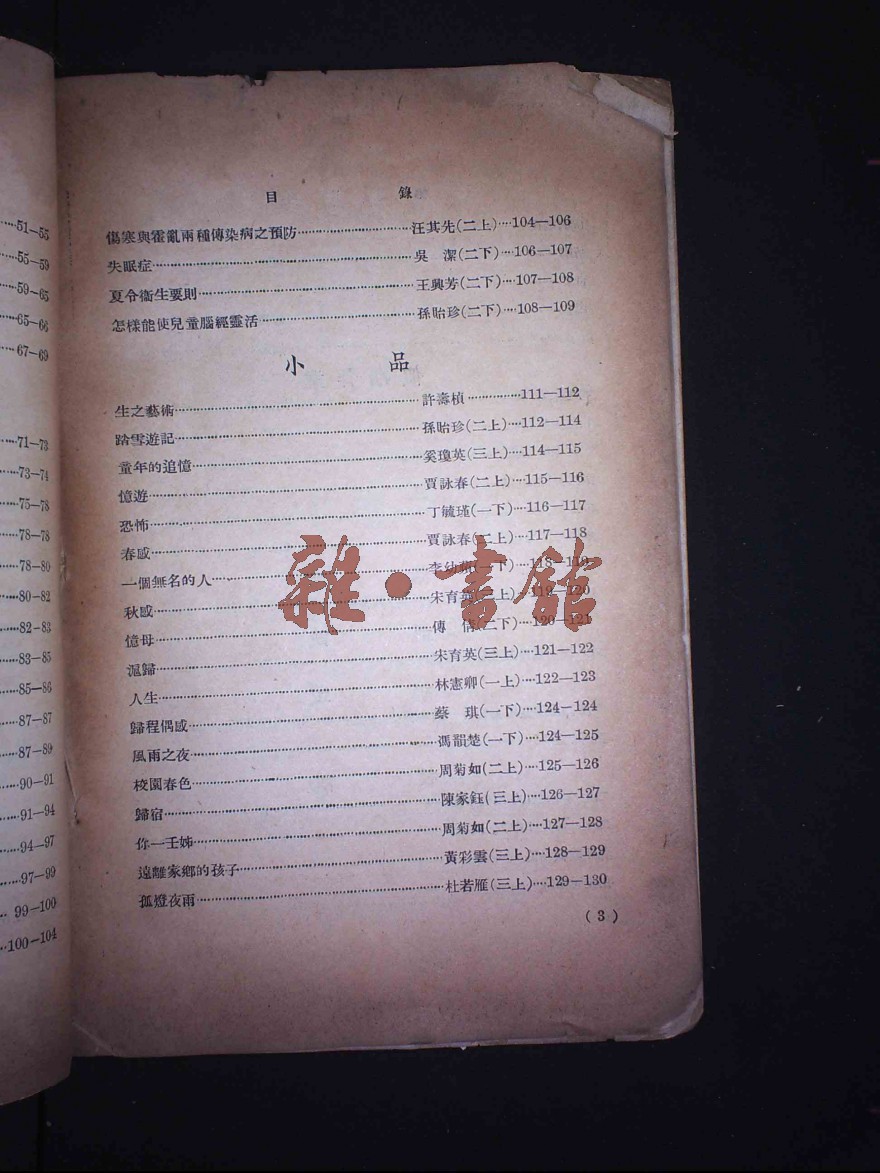 51—55
55—59
59—65
65—66
67—69
71—73
73—74
75—78
78—78
78—80
80—82
82—83
83—85
85—86
87—87
87—89
90—91
91—94
94—97
97—99
99—100
100—104
目 錄
傷寒與霍亂兩種傳染病之預防……汪其先(二上)…104—106
失眠症……吳 潔(二下)…106—107
夏令衞生要則……王興芳(二下)…107—108
怎樣能使兒童腦經靈活……孫貽珍(二下)…108—109
小 品
生之藝術……許壽楨……111—112
踏雪遊記……孫貽珍(二上)…112—114
童年的追憶……奚瓊英(三上)…114—115
憶遊……賈詠春(二上)…115—116
恐怖……丁毓瑾(一下)…116—117
春感……賈詠春(二上)…117—118
一個無名的人……李幼(一下)…118—119
秋感……宋育英(三上)…119—120
憶母……傳 倩(二下)…120—121
滬歸……宋育英(三上)…121—122
人生……林憲卿(一上)…122—123
歸程偶感……蔡 琪(一下)…124—124
風雨之夜……馮韻楚(一下)…124—125
校園春色……周菊如(二上)…125—126
歸宿……陳家鈺(三上)…126—127
你—壬姊……周菊如(二上)…127—128
遠離家鄉的孩子……黃彩雲(三上)…128—129
孤燈夜雨……杜若雁(三上)…129—130
(3)
雜·書館